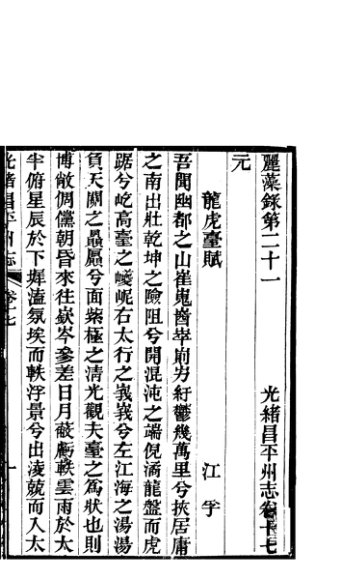 麗藻錄第二十一　光緒昌平州志卷十七
元
龍虎臺賦　江孚
吾聞幽都之山崔嵬崷崒崱屴紆鬱幾萬里兮挾居庸
之南出壯乾坤之險阻兮開混沌之端倪滀龍盤而虎
踞兮屹高臺之崚嶒右太行之峩峩兮左江海之湯湯
負天關之贔屭兮面紫極之清光觀夫臺之為狀也則
博敞倜儻朝昏來往嶽岑參差日月蔽虧軼雲雨於太
半俯星辰於下墀溘氛埃而軼浮景兮出淩兢而入太
光緒昌平州志 卷十七 一